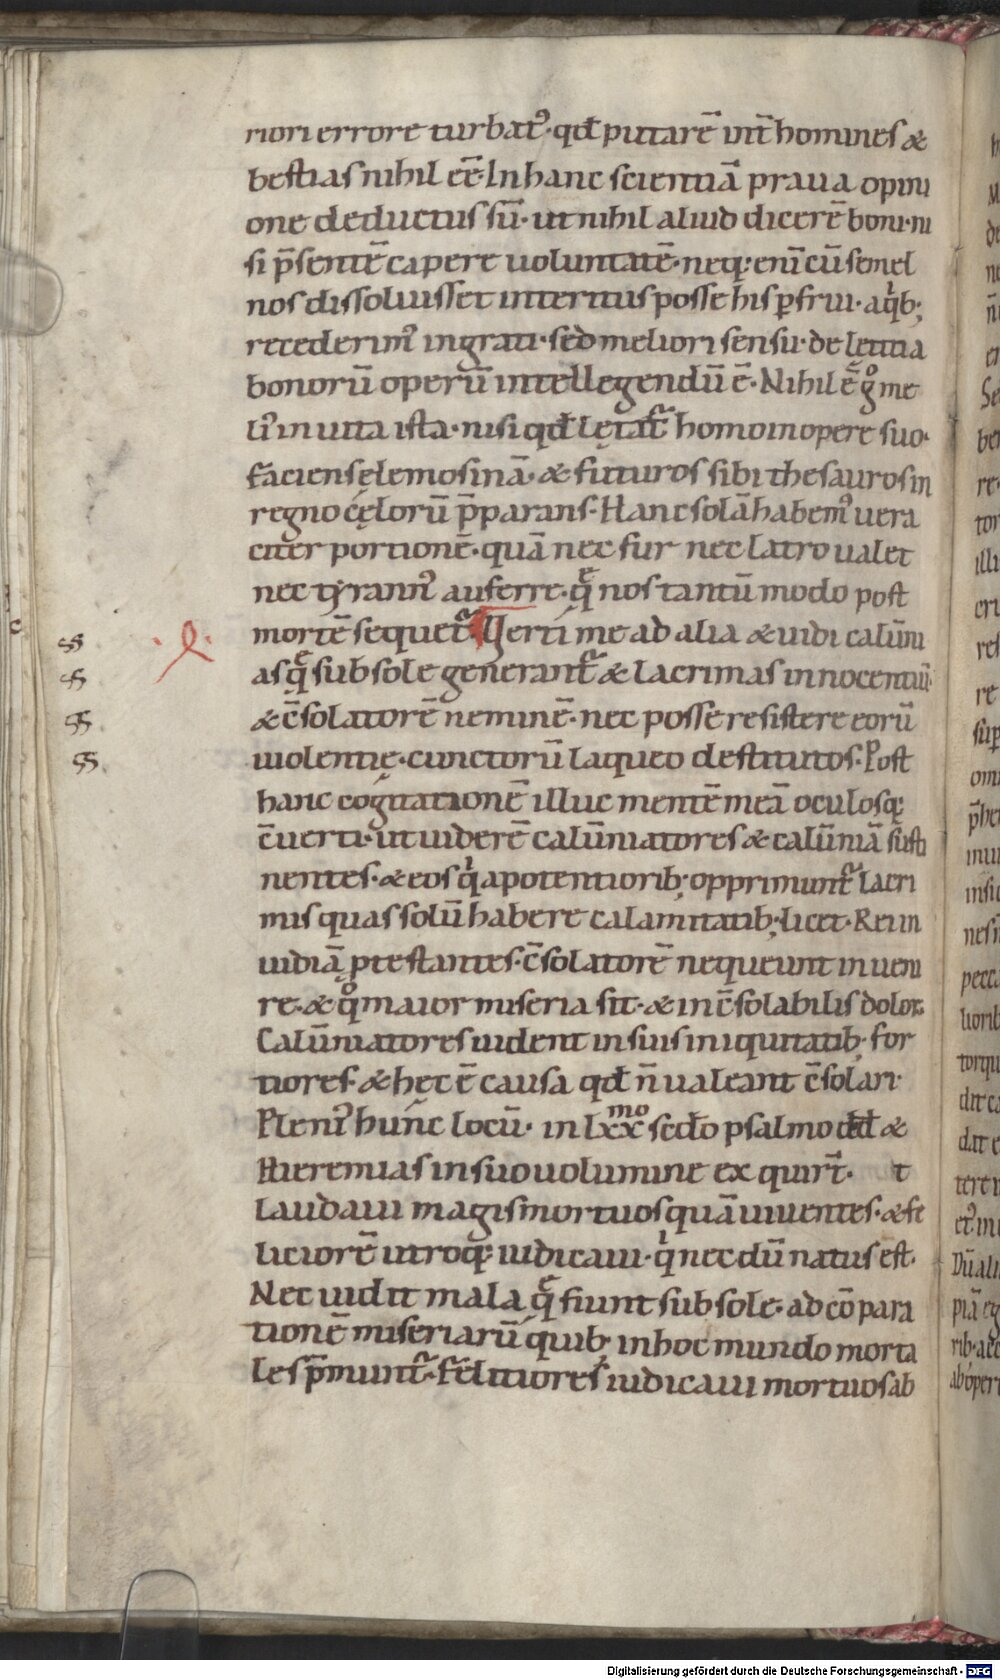 riori errore turbat᾽· qđ putarē int̄ homines &
bestias nihil eē· In hanc scientiā praua opini
one deductus sū· ut nihil aliud dicerē boni· ni
si p̄sentē capere uoluntatē· neq; eni cū semel
nos dissoluisset interitus posse his ꝑfrui· a qͥb;
recederim᾽ ingrati· sed meliori sensu· de lętitia
bonorū operū intellegendū ē· Nihil ē gͦ me
li᾽ in uita ista· nisi qđ lętat᷑ homo in opere suo·
faciens elemosinā· & futuros sibi thesauros in
regno cęlorū p̄parans· Hanc solā habem᾽ uera
citer portionē· quā nec fur nec latro ualet
nec tyrann᾽ auferre· q̄ nos tantū modo post
mortē sequet᷑· Uerti me ad alia & uidi calūni
as q̄ sub sole generant᷑ & lacrimas innocentiū·
& c̄solatorē neminē· nec posse resistere eorū
uiolentię· cunctorū laqueo destitutos· Post
hanc cogitationē illuc mentē meā oculosq;
c̄uerti· ut uiderē calūniatores & calūniā susti
nentes· & eos qͥ a potentiorib; opprimunt᷑ lacri
mis quas solū habere calamitatib; licet· Rei in
uidiā ꝓtestantes· c̄solatorē nequeunt inueni
re· & qͦ maior miseria sit· & inc̄solabilis dolor·
Calūniatores uident in suis iniquitatib; for
tiores· & hęc ē causa qđ n̄ ualeant c̄solari·
Pleni᾽ hunc locū· in lxxmo scđo psalmo đđ &
Hieremias in suo uolumine exquirt̄· t
Laudaui magis mortuos quā uiuentes· & fe
liciorē utroq; iudicaui· qͥ nec dū natus est·
Nec uidit mala q̄ fiunt sub sole· ad cōpara
tionē miseriarū quib; in hoc mundo morta
les p̄munt᷑· felitiores iudicaui mortuos ab
Digitalisierung gefördert durch die Deutsche Forschungsgemeinschaft - DFG